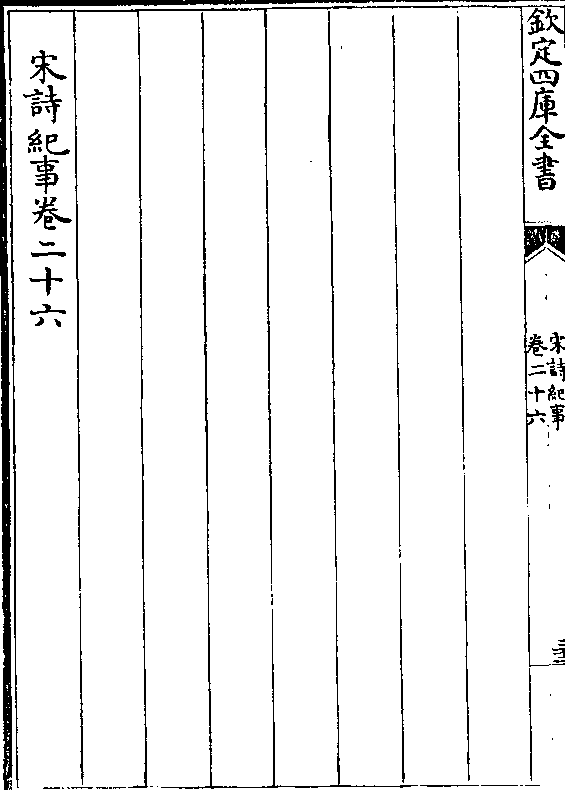 欽定四庫全書
宋詩紀事
卷二十六
宋詩紀事卷二十六